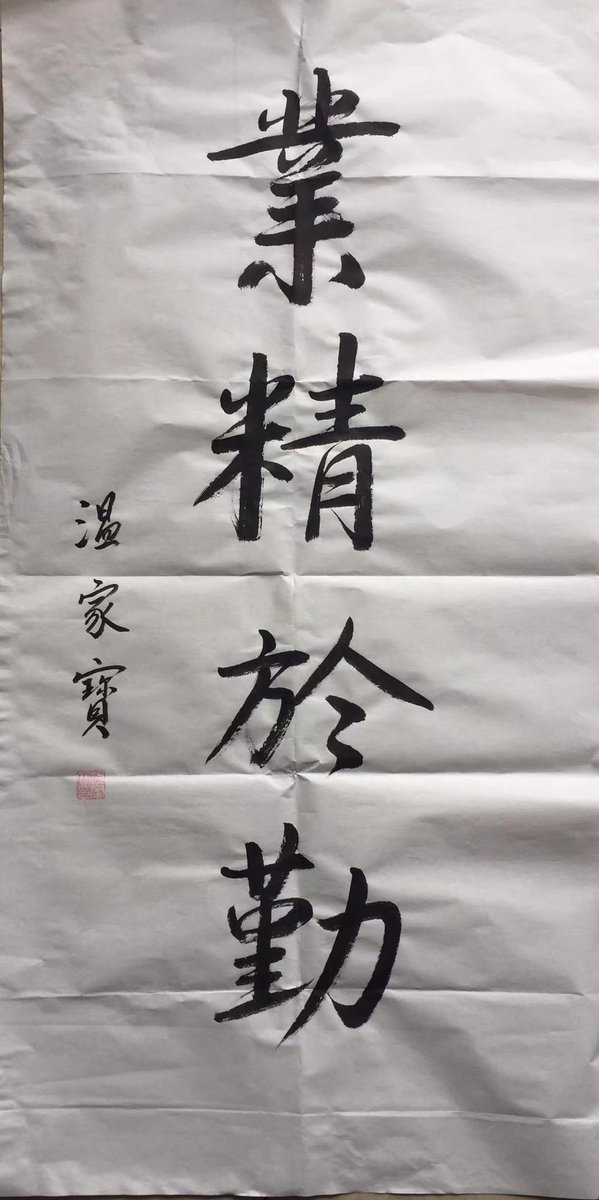 業精於勤
溫家寶